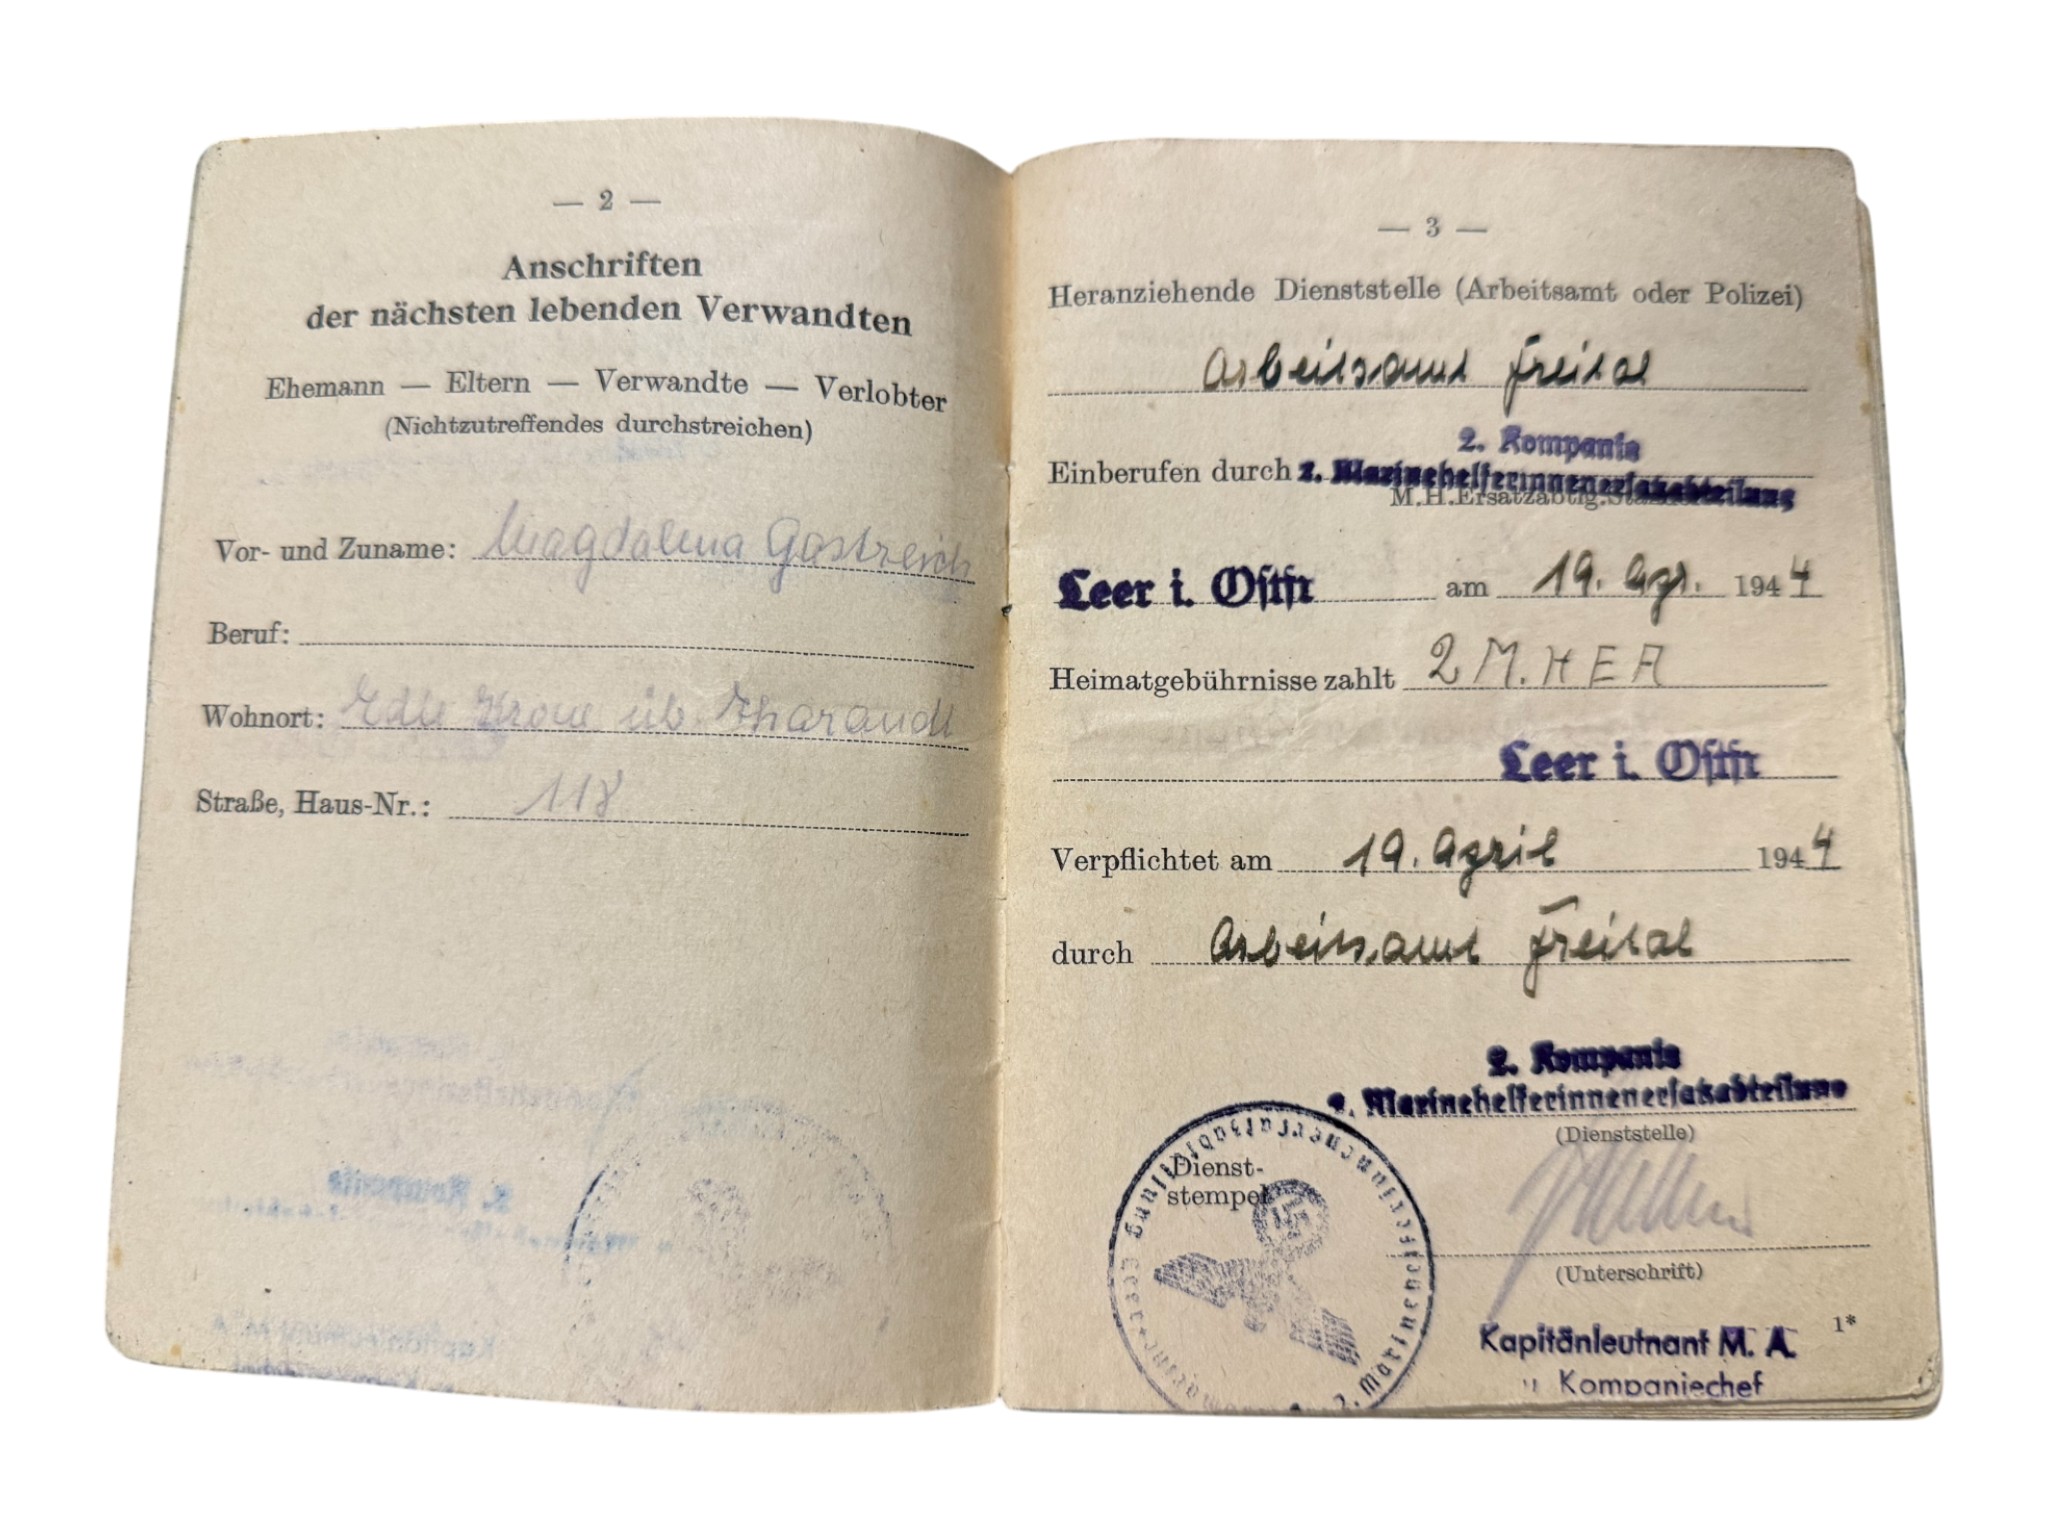 — 2 —
Anschriften
der nächsten lebenden Verwandten
Ehemann — Eltern — Verwandte — Verlobter
(Nichtzutreffendes durchstreichen)
Vor- und Zuname: Magdalena Gastreich
Beruf:
Wohnort: Edle Krone üb. Tharandt
Straße, Haus-Nr.: 118
— 3 —
Heranziehende Dienststelle (Arbeitsamt oder Polizei)
Arbeitsamt Freital
2. Kompanie
Einberufen durch 2. Marinehelferinnenersatzabteilung
M.H.Ersatzabtlg.
Leer i. Ostfr am 19. Apr. 1944
Heimatgebührnisse zahlt 2 M.H E A
Leer i. Ostfr
Verpflichtet am 19. April 1944
durch Arbeitsamt Freital
2. Kompanie
2. Marinehelferinnenersatzabteilung
(Dienststelle)
Dienst-
stempel
2. Marinehelferinnenersatzabteilung
(Unterschrift)
Kapitänleutnant M. A.
u Kompaniechef
1*